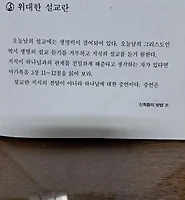 위대한 설교란
오늘날의 설교에는 생명력이 결여되어 있다. 오늘날의 그리스도인
역시 생명의 설교 듣기를 거부하고 지식의 설교를 듣기 원한다.
지식이 하나님과의 관계를 친밀하게 해준다고 생각하는 자가 있다면
마가복음 3장 11~12절을 읽어 보라.
설교란 지식의 전달이 아니라 하나님에 대한 증언이다. 증언은
신학함의 방법